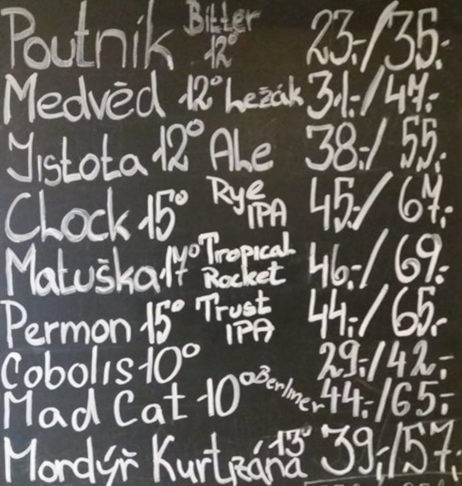 Poutník Bitter 12° 23.-/35.-
Medvěd 12° Ležák 31.-/47.-
Jistota 12° Ale 38.-/55.-
Clock 15° Rye IPA 45.-/67.-
Matuška 17° Tropical Rocket 46.-/69.-
Permon 15° Trust IPA 44.-/65.-
Cobolis 10° 29.-/42.-
Mad Cat 10° Berliner 44.-/65.-
Mordýř Kurtzáná 13° 39.-/57.-